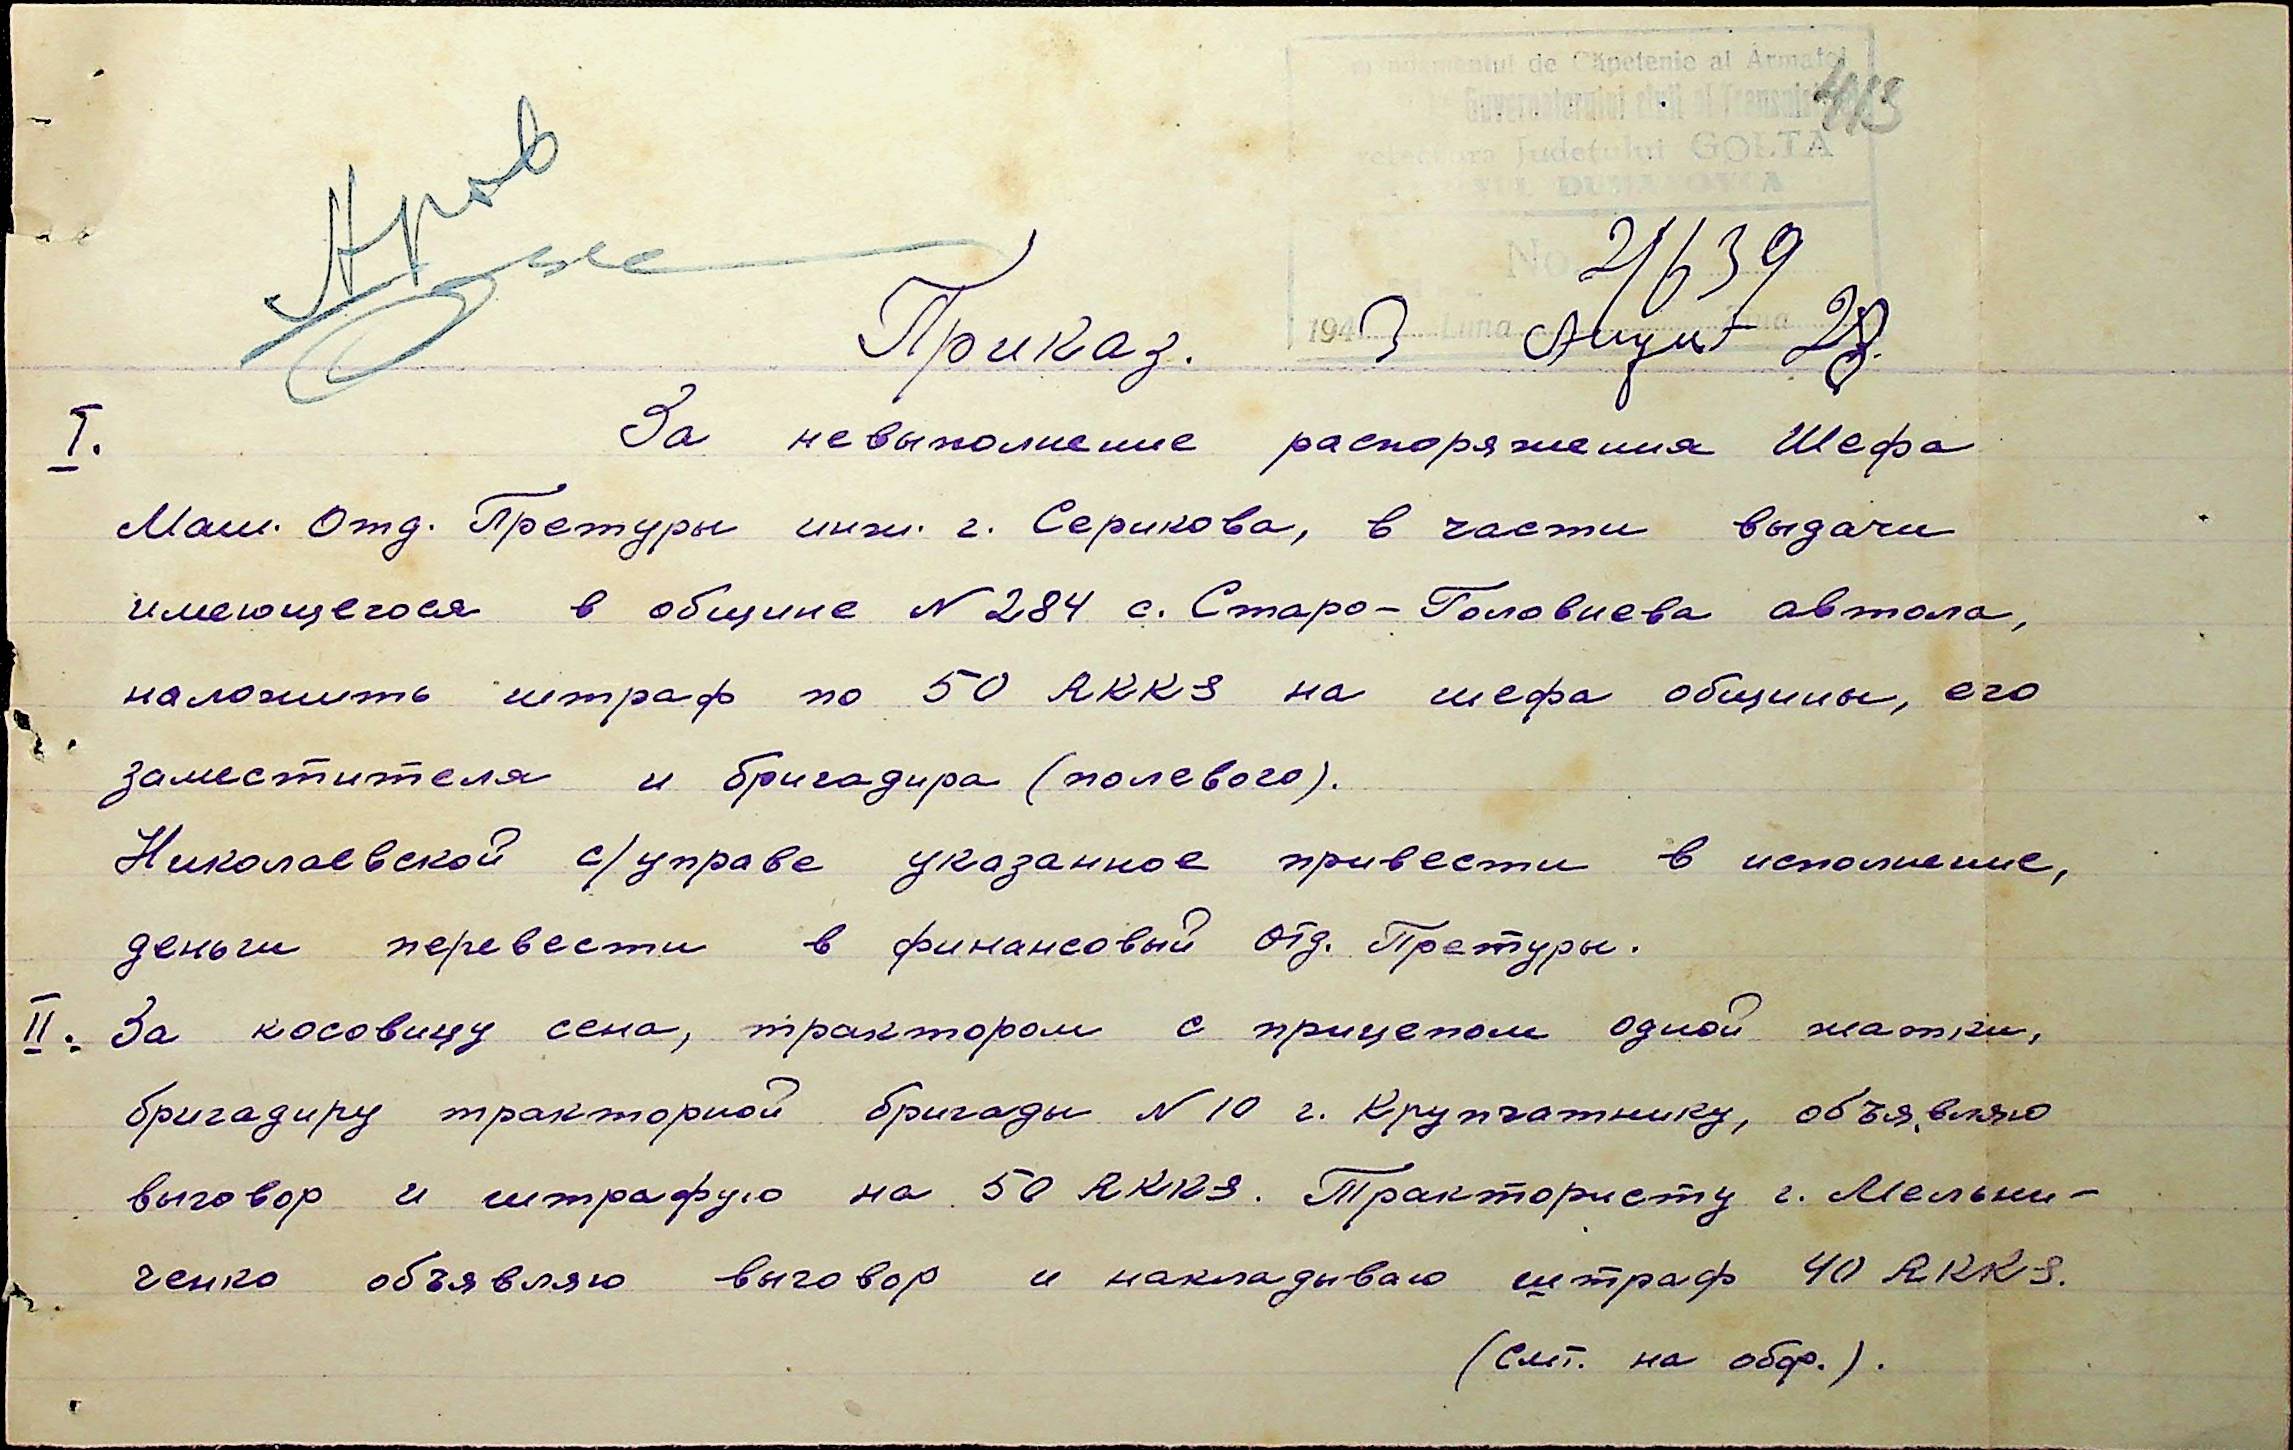 de Căpetenie al Armatei
413
Guvernatorului civil al
Județului GOLTA
No. 21639
1943 Luna August Ziua 28
Приказ.
I. За невыполнение распоряжения Шефа
Маш. Отд. Претуры инж. г. Серикова, в части выдачи
имеющегося в общине N 284 с. Старо-Головнева автола,
наложить штраф по 50 RKKS на шефа общины, его
заместителя и бригадира (полевого).
Николаевской с/управе указанное привести в исполнение,
деньги перевести в финансовый Отд. Претуры.
II. За косовицу сена, трактором с прицепом одной жатки,
бригадиру тракторной бригады N 10 г. Крупчатнику, объявляю
выговор и штрафую на 50 RKKS. Трактористу г. Мельни-
ченко объявляю выговор и накладываю штраф 40 RKKS.
(смт. на обор.).